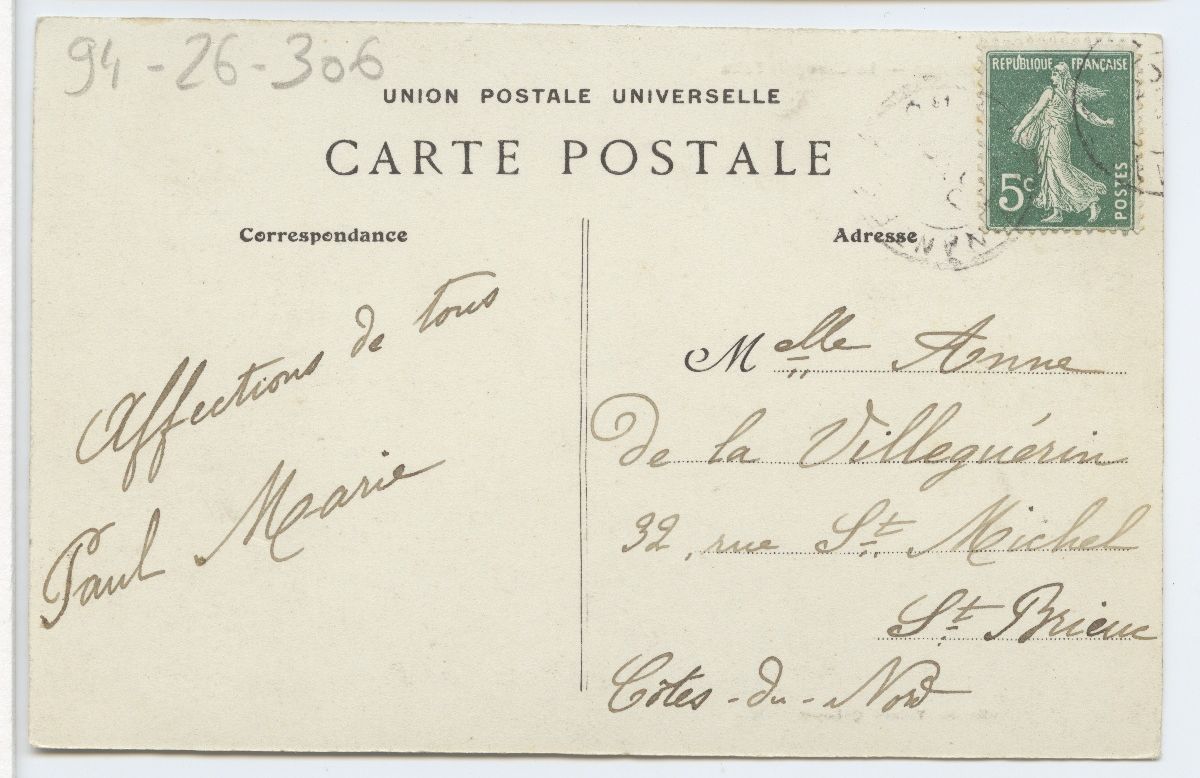 94-26-306
UNION POSTALE UNIVERSELLE
CARTE POSTALE
REPUBLIQUE FRANÇAISE
5c
POSTES
Correspondance
Affections de tous
Paul Marie
Adresse
Melle Anne
de la Villeguérin
32, rue St Michel
St Brieuc
Côtes-du-Nord